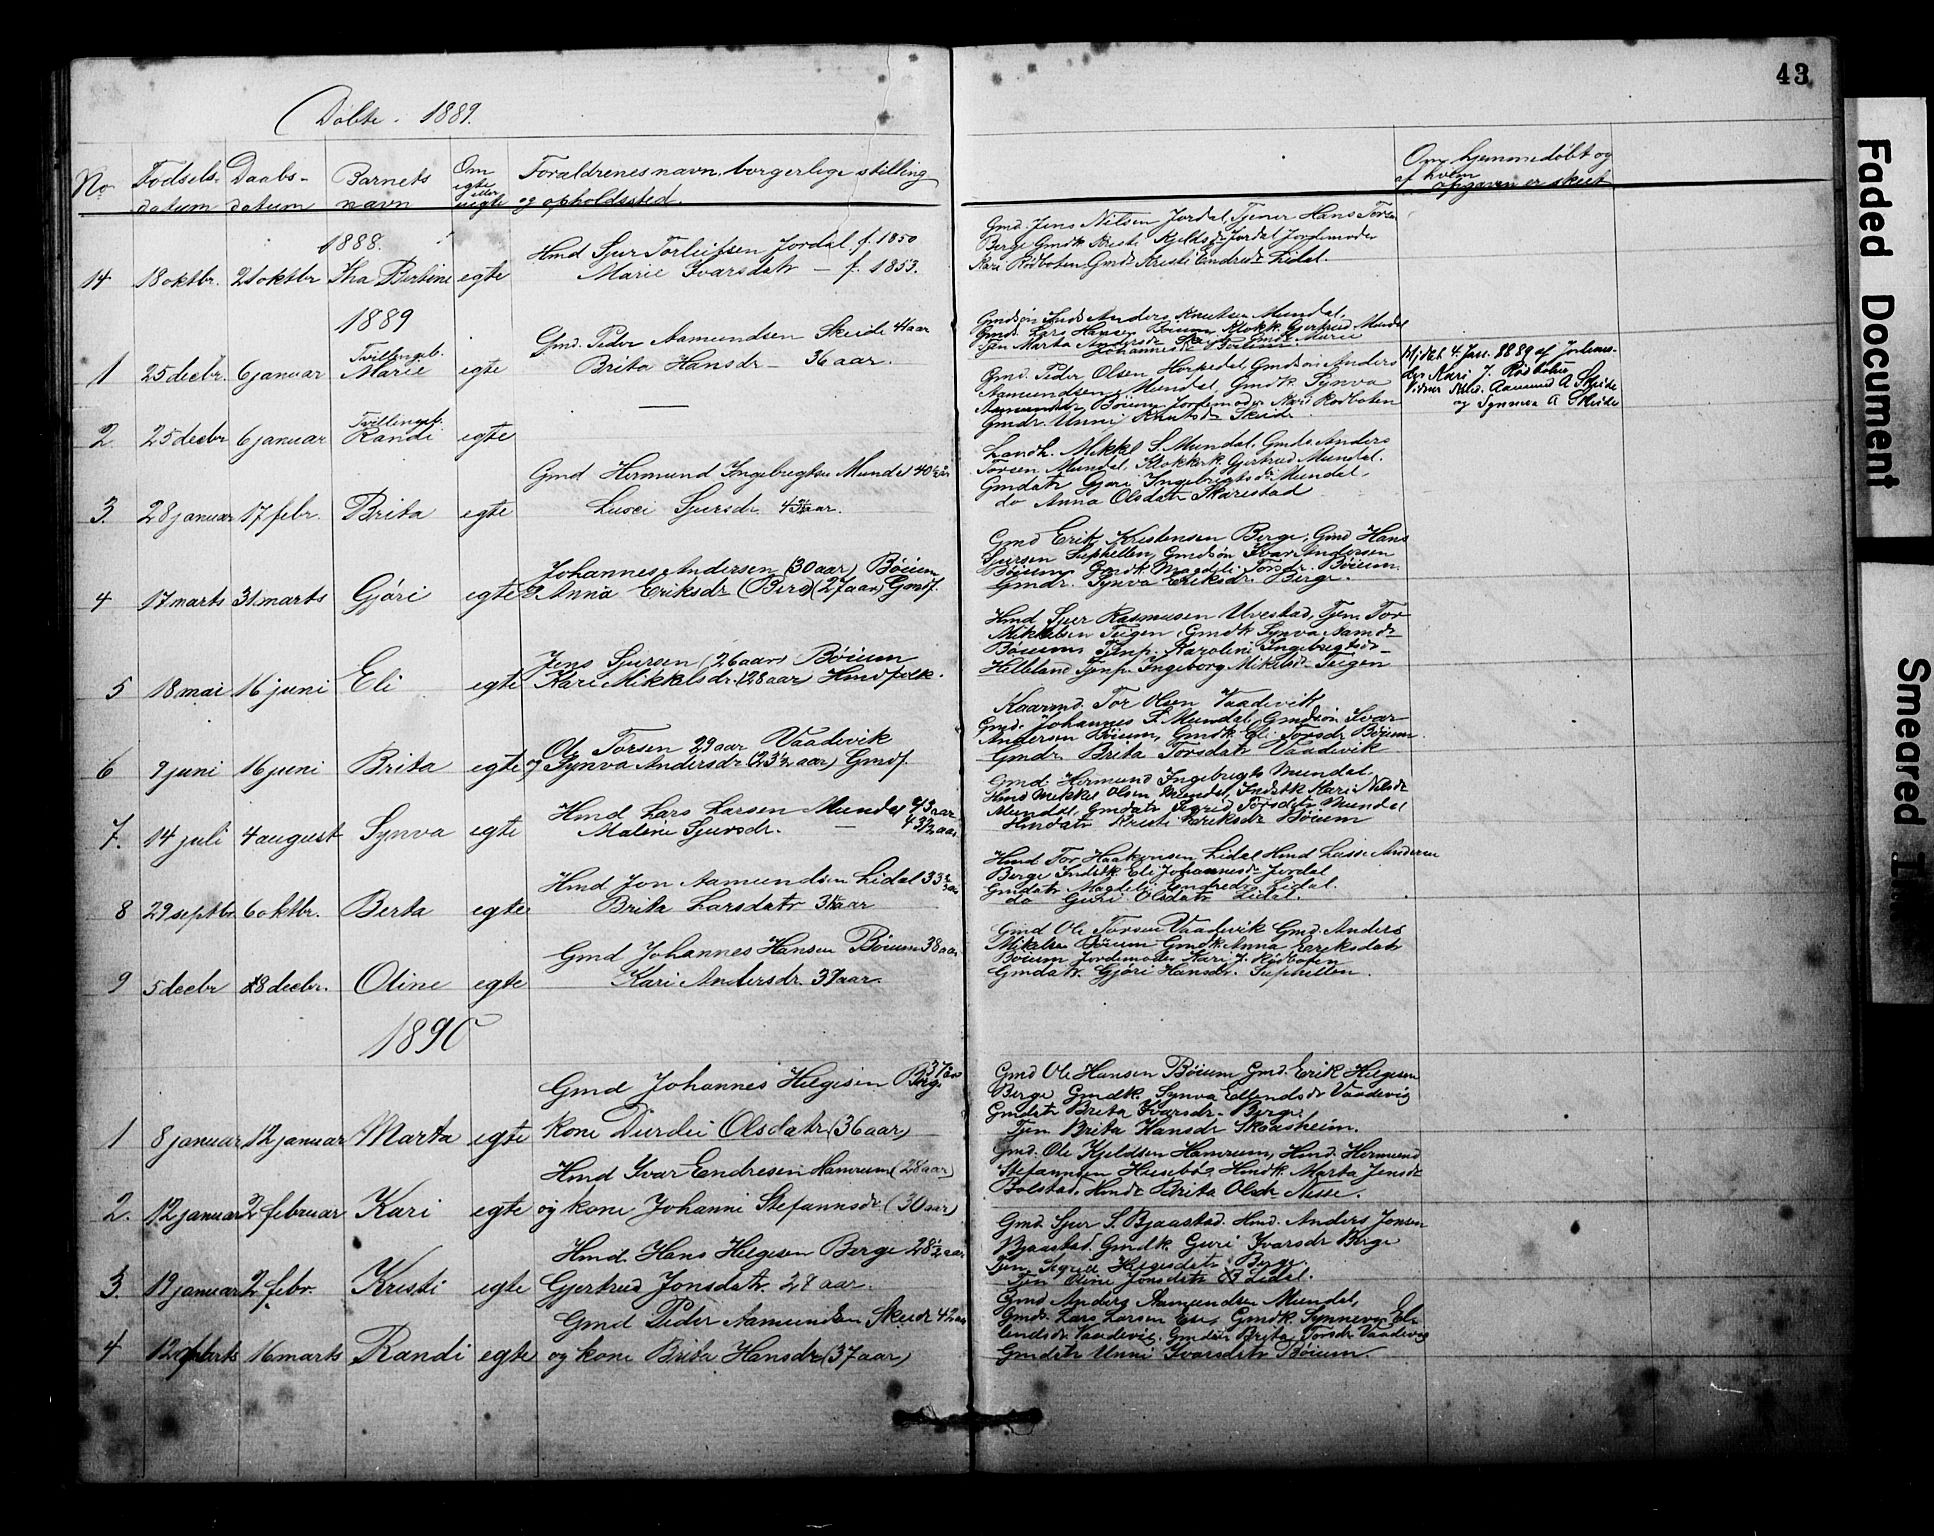 43
Döbte. 1889.
No Fodsels- datum
Daabs- datum
Barnets navn
Om egte eller uegte
Foraldrenes navn, borgerlige stilling
og opholdssted.
Om hjemmedöbt og
af hvem
opgaven er skeet
1888.
14 18 oktbr. 21 oktbr Ika Bertine egte
Hmd Sjur Torleifsen Jordal f. 1850
Marie Ivarsdatr — f. 1853.
Gmd. Jens Nilsen Jordal, Tjener Hans Torsen
Berge Gmdk. Kristi Kjeldsdr Jordal Jordemoder
Kari Rödboten Gmdr Kristi Endresdr Lidal.
1889
1 25 decbr. 6 januar Tvillingeb. Marie egte
Gmd. Peder Aamundsen Skeide 41 aar
Brita Hansdr — 36 aar.
Anders Knutsen Mundal,
Gmd. Lars Hansen Böium, Klokk. Gjertrud Mundal
Tjen Marta Andersdr
Johannesdr Böium
2. 25 decbr 6 januar Tvillingeb. Randi egte
—
Gmd. Peder Olsen Harpedal Gmdsön Anders
Aamundsen Mundal, Gmdk. Synva
Böium Jordemoder Kari Rödboten
Gmdr. Unni Knutsdr Skeide
Hjdbt 4. Jan. 8889 af Jordemo-
der Kari J. Rödboten
Vidner Aamund A Skeide
og Synneva A Skeide
3. 28 januar 17 febr. Brita egte
Gmd Hermund Ingebrigtsen Mundal 40½ aar
Lussi Sjursdr. 43¾ aar.
Landh. Mikkel S. Mundal, Gmd. Anders
Torsen Mundal. Klokkerk. Gjertrud Mundal.
Gmdatr Gjöri Ingebrigtsdr Mundal,
do Anna Olsdatr Skarestad
4 17 marts 31 marts Gjöri egte
Johannes Andersen (30 aar) Böium
Anna Eriksdr (Berge) (27 aar) Gmdf.
Gmd Erik Kristensen Berge, Gmd Hans
Sjursen Suphellen, Gmdsön Ivar Andersen
Böium, Gmdk. Magdli Torsdr. Böium.
Gmdr. Synva Eriksdr. Berge.
5 18 mai 16 juni Eli egte
Jens Sjursen (26 aar) Böium
Kari Mikkelsdr. (28 aar) Hmdfolk.
Hmd Sjur Rasmusen Ulvestad, Tjen Tor
Mikkelsen Teigen, Gmdk Synva Aamdr
Böium Tjnp. Karoline Ingebrigtsdr
Helleland Tjnp. Ingeborg Mikelsdr Teigen
6 9 juni 16 juni Brita egte
Ole Torsen 29 aar Vaadevik
og Synva Andersdr (23½ aar) Gmdf.
Kaarmd. Tor Olsen Vaadevik
Gmd. Johannes S. Mundal, Gmdsön Ivar
Andersen Böium, Gmdk. Eli Torsdr Böium.
Gmdr. Brita Torsdatr Vaadevik
7. 14 juli 4 august Synva egte
Hmd Lars Larsen Mundal 43 aar
Malene Sjursdr. — 43½ aar
Gmd. Hermund Ingebrigts Mundal.
Hmd Mikkel Olsen Mundal, Indstk Kari Nilsdr
Mundal, Gmdatr Sigrid Torsdtr Mundal
Hmdatr Kristi Eriksdr Böium
8 29 septbr 6 oktbr. Berta egte
Hmd Jon Aamundsen Lidal 33 aar
Brita Larsdatr 31 aar
Hmd Tor Haakonsen Lidal Hmd Lasse Andersen
Berge Indstk Eli Johannesdr Jordal
Gmdatr Magdeli Endredr Lidal.
do Guri Olsdatr Lidal.
9 5 decbr 28 decbr. Oline egte
Gmd Johannes Hansen Böium 38 aar
Kari Andersdr. 37 aar.
Gmd Ole Torsen Vaadevik Gmd. Anders
Mikelsen Böium Gmdk. Anna Eriksdatr
Böium Jordemoder Kari J. Rödboten
Gmdatr. Gjöri Hansdr. Suphellen.
1890
1 8 januar 12 januar Marta egte
Gmd Johannes Helgesen Berge 37 aar
kone Durdei Olsdatr (36 aar)
Gmd Ole Hansen Böium Gmd. Erik Helgesen
Berge Gmdk. Synva Ellendsdr Vaadevig
Gmdatr Brita Ivarsdr. Berge,
Tjen Brita Hansdr Skaasheim.
2. 12 januar 2 februar Kari egte
Hmd Ivar Endresen Hamrum (28 aar)
og kone Johanne Stefannsdr (30 aar)
Gmd. Ole Kjeldsen Hamrum, Hmd. Hermund
Stefannsen Husebö, Hmdk. Marta Jensdr
Bolstad. Hmdr Brita Olsdr Nesse.
3. 19 januar 2 febr. Kristi egte
Hmd. Hans Helgesen Berge 28½ aar
Gjertrud Jonsdatr. 28 aar.
Gmd. Sjur S. Bjaastad. Hmd. Anders Jonsen
Bjaastad. Gmdk. Guri Ivarsdr Berge
Tjen Sigrid Helgesdatr Berge.
Tjen Oline Jonsdatr Lidal.
4 12 marts 16 marts Randi egte
Gmd Peder Aamundsen Skeide 42 aar
og kone Brita Hansdr (37 aar)
Gmd Anders Aamundsen Mundal,
Gmd. Lars Larsen Ese, Gmdk. Synneva El-
lendsdr Vaadevig, Gmdatr Brita Torsdr Vaadevig
Gmdatr Unni Ivarsdatr Böium.
Faded Document
Smeared Ink